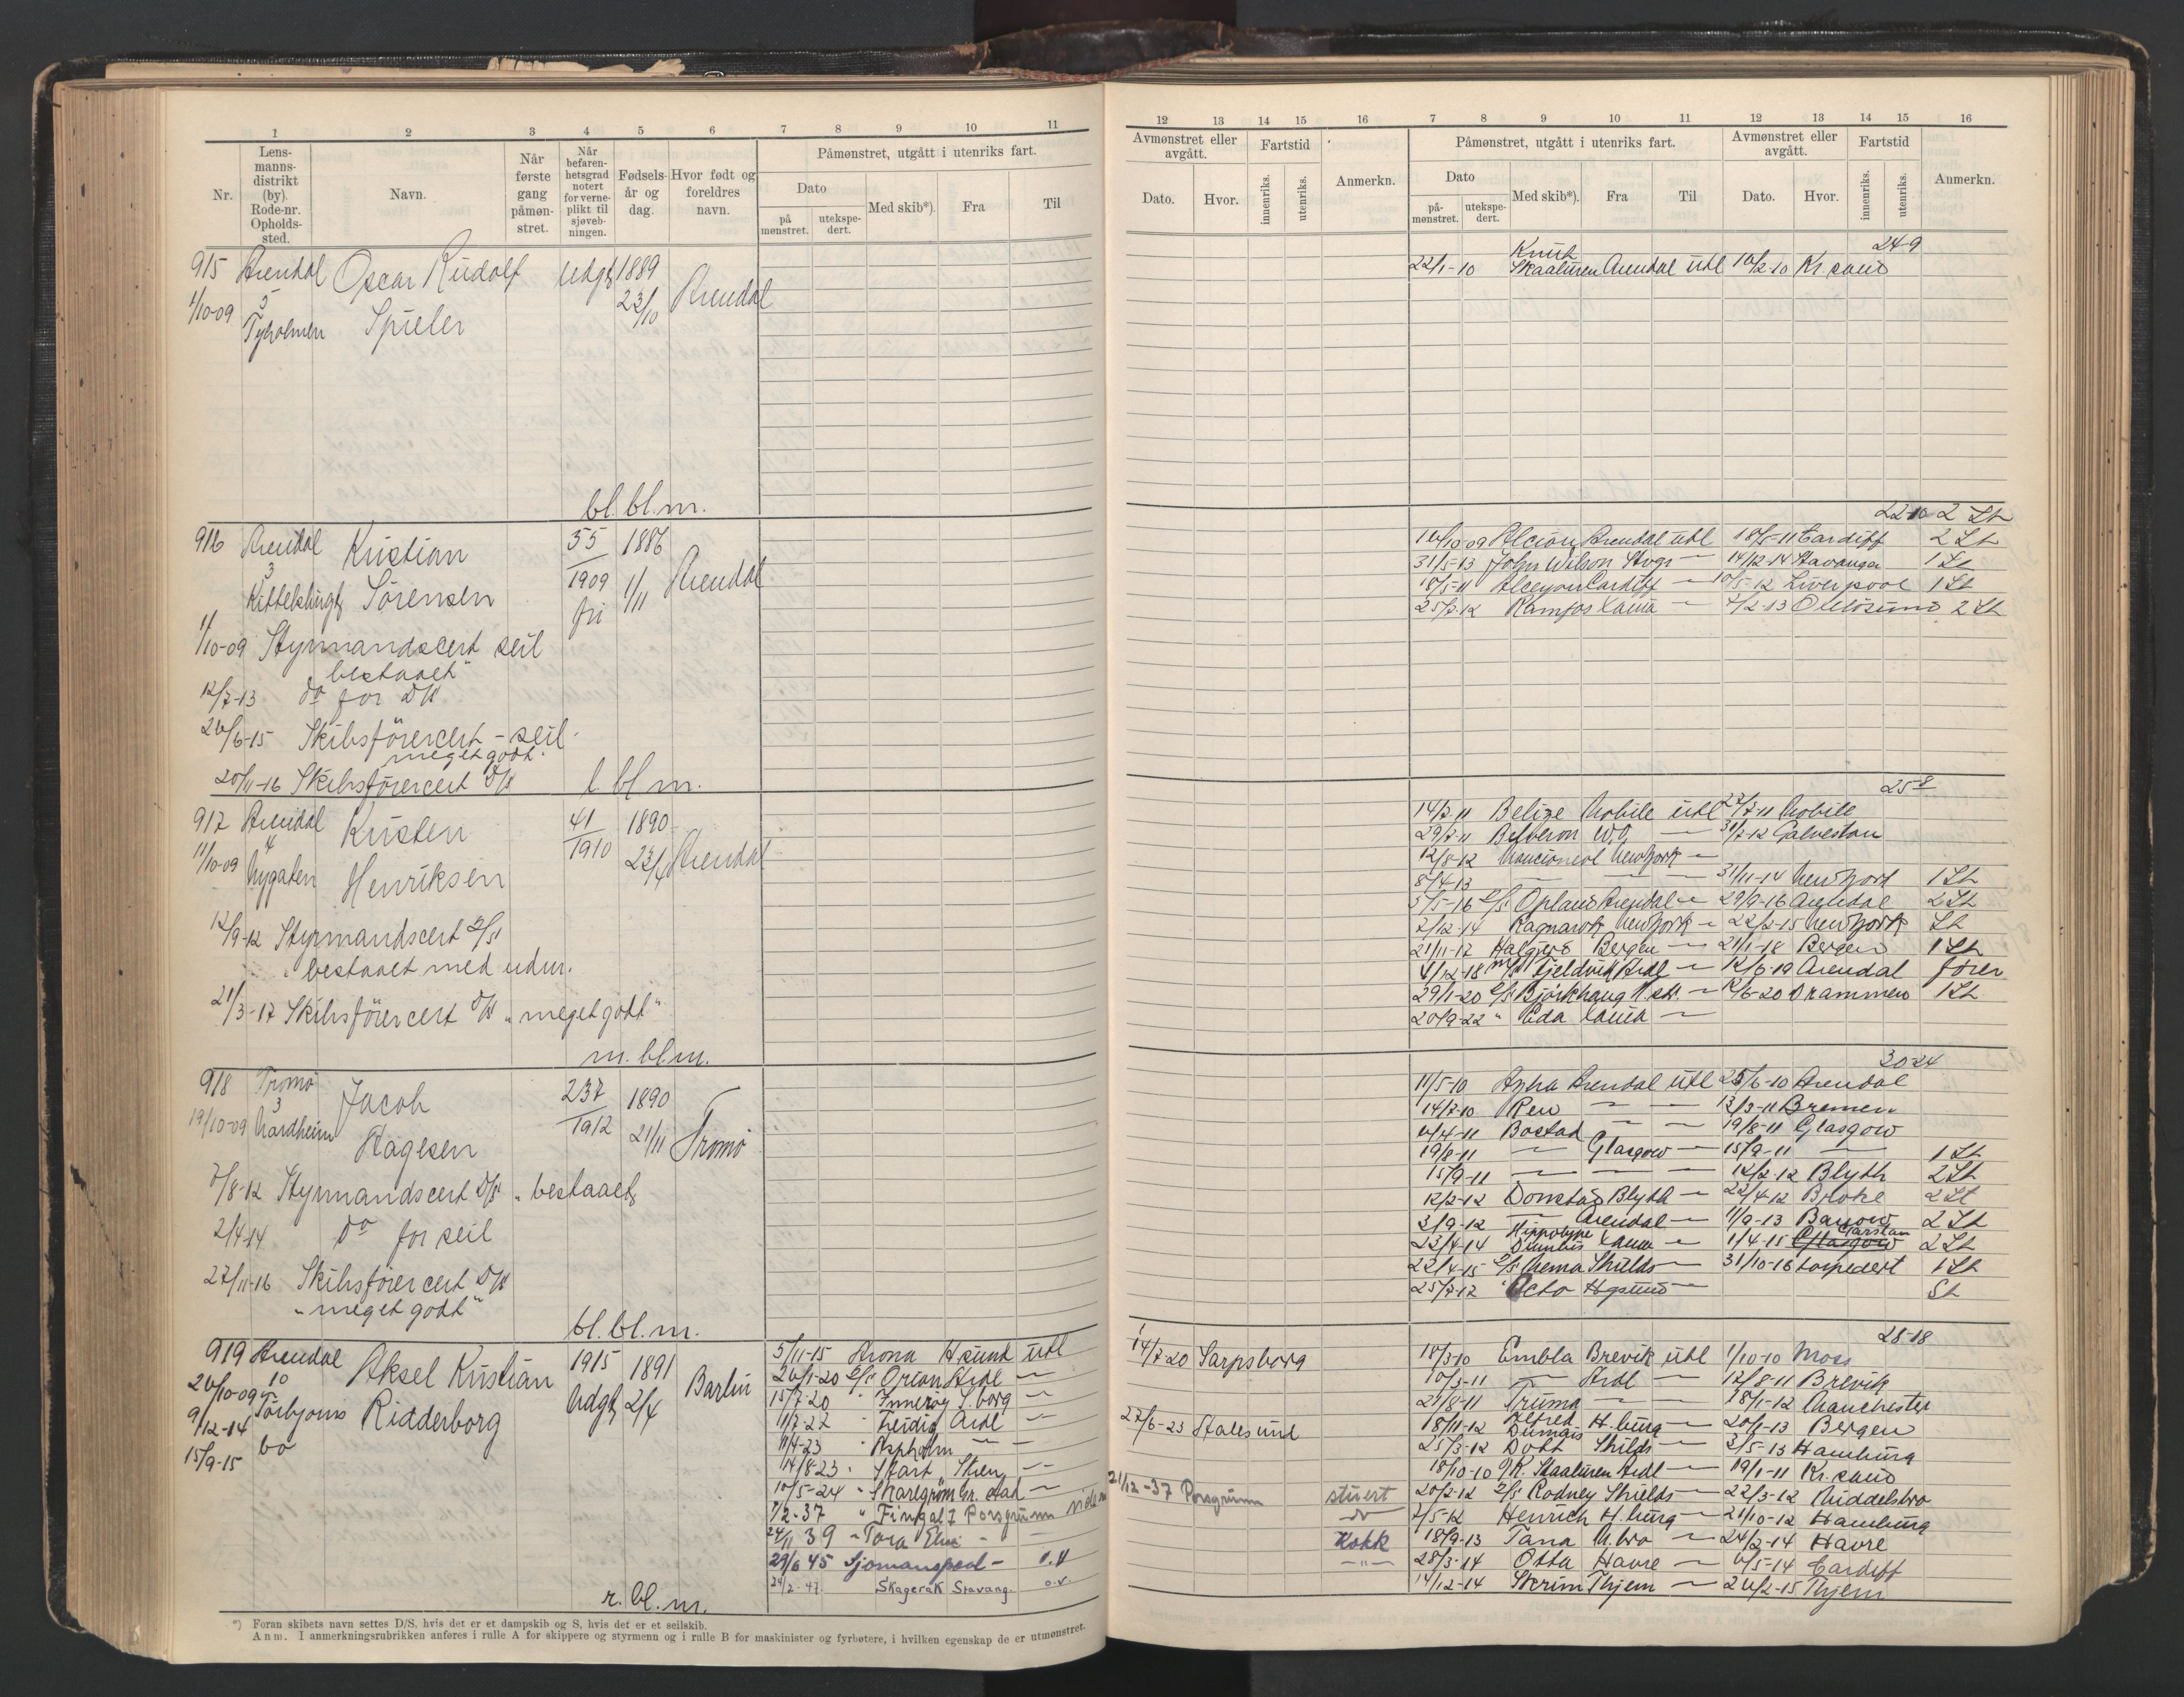 1 2 3 4 5 6 7 8 9 10 11
Nr.
Lens-
manns-
distrikt
(by).
Rode-nr.
Opholds-
sted.
Navn.
Når
første
gang
påmøn-
stret.
Når
befaren-
hetsgrad
notert
for verne-
plikt til
sjøveb-
ningen.
Fødsels-
år og
dag.
Hvor født og
foreldres
navn.
Påmønstret, utgått i utenriks fart.
Dato
på
mønstret.
utekspe-
dert.
Med skib*).
Fra
Til
915 Arendal Oscar Rudolf Udgt 1889
1/10-09 5 23/10 Arendal
Tyholmen Spieler
bl. bl. m.
916 Arendal Kristian 55 1886
3 1909 1/11 Arendal
Kittelsbugt Sørensen fri
1/10-09 Styrmandscert seil
bestaaet"
12/7-13 do for D/S
26/6-15 Skibsförercert - seil.
meget godt.
20/11-16 Skibsförercert D/S l. bl. m.
917 Arendal Kristen 41 1890
4 1910 23/4 Arendal
11/10-09 Nygaten Henriksen
12/9-12 Styrmandscert D/S
"bestaaet med udm.
21/3-17 Skibsförercert D/S "meget godt"
m. bl. m.
918 Tromö Jacob 237 1890
3 1912 21/11 Tromö
19/10-09 Nardheim Hagesen
7/8-12 Styrmandscert D/S "bestaaet
2/4-14 do for seil
27/11-16 Skibsförercert D/S
"meget godt"
bl. bl. m.
919 Arendal Aksel Kristian 1915 1891 Barlin
10 Udgt 2/4
26/10-09 Ridderborg
9/12-14 Törbjørns
15/9-15 bo
r. bl. m.
5/11-15 Arona H.sund utl
26/1-20 D/S Orion Ardl —
15/7-20 " Inneröy S.borg —
11/7-22 " Leidig Ardl —
11/4-23 " Aspholm — —
14/8-23 " Start Skien —
10/5-24 " Skaregrøm Gr.stad —
7/2-37 " Fingal 7 Porsgrunn
24/11 39 " Tora Elise -
29/6 45 Sjömanspool — o.v
24/2-47 Skagerak Stavang. o.v.
*) Foran skibets navn settes D/S, hvis det er et dampskib og S, hvis det er et seilskib.
Anm. I anmerkningsrubrikken anføres i rulle A for skippere og styrmenn og i rulle B for maskinister og fyrbøtere, i hvilken egenskap de er utmønstret.
12 13 14 15 16 7 8 9 10 11 12 13 14 15 16
Avmønstret eller
avgått.
Fartstid
Dato.
Hvor.
innenriks.
utenriks.
Anmerkn.
Påmønstret, utgått i utenriks fart.
Dato
på-
mønstret.
utekspe-
dert.
Med skib*).
Fra
Til
Avmønstret eller
avgått.
Dato.
Hvor.
Fartstid
innenriks.
utenriks.
Anmerkn.
24-9
Knut
22/1-10 Skaaluren Arendal utl 10/2-10 Kr.sand
22-10 2 St
16/10-09 Alcion Arendal utl 18/5-11 Cardiff 2 St
31/5-13 John Wilson Stvgr — 14/12-14 Stavanger 1 St
18/5-11 Alcyon Cardiff — 10/5-12 Liverpool 1 St
25/7-12 Ramfos Laura — 7/2-13 2 St
25-8
14/2-11 Belize Mobile utl 27/7-11 Mobile
29/7-11 — 31/7-12 Galveston
12/8-12 New York —
8/4-13 — — — 31/11-14 New York 1 St
5/5-16 D/S Opland Arendal — 29/9-16 Arendal 2 St
2/12-14 Ragnarok New York — 22/2-15 New York St
21/11-17 Halgjerd Bergen — 21/1-18 Bergen 1 St
4/12-18 m/s Fjeldvik Ardl — 12/6-19 Arendal förer
29/1-20 D/S Björkhaug — 12/6-20 Drammen 1 St
20/9-22 " Eda Laura —
30-24
11/5-10 Arendal utl 25/6-10 Arendal
14/7-10 Reu — — 13/3-11 Bremen
6/4-11 Bastad — — 19/8-11 Glasgow
19/8-11 — Glasgow — 15/9-11 — 1 St
15/9-11 — — — 12/2-12 Blyth 2 St
12/2-12 Donstad Blyth — 22/4-12 2 St
3/9-12 — Arendal — 11/9-13 Barrow 2 St
23/4-14 Hippolype Dumois Laura — 1/4-15 Garston 2 St
22/4-15 D/S Nema Shields — 31/10-16 torpedert 1 St
25/7-17 " Octo H.gsund — St
28-18
14/7-20 Sarpsborg
27/6-23 Aalesund
21/12-37 Porsgrunn stuert
Kokk
—"—
18/3-10 Embla Brevik utl 1/10-10 Moss
10/3-11 — Ardl — 12/8-11 Brevik
21/8-11 Truma — — 18/1-12 Manchester
18/11-12 Alfred Dumois H.burg — 20/1-13 Bergen
25/3-12 Dott Shilds — 3/5-13 Hamburg
18/10-10 K. Skaaluren Ardl — 19/1-11 Kr.sand
20/2-12 D/S Rodney Shields — 22/3-12 Middelsbro
7/5-12 Henrich H.burg — 21/10-12 Hamburg
18/9-13 Tana M.bro — 24/2-14 Havre
28/3-14 Otta Havre — 6/5-14 Cardiff
14/12-14 Skrim Thjem — 26/2-15 Thjem